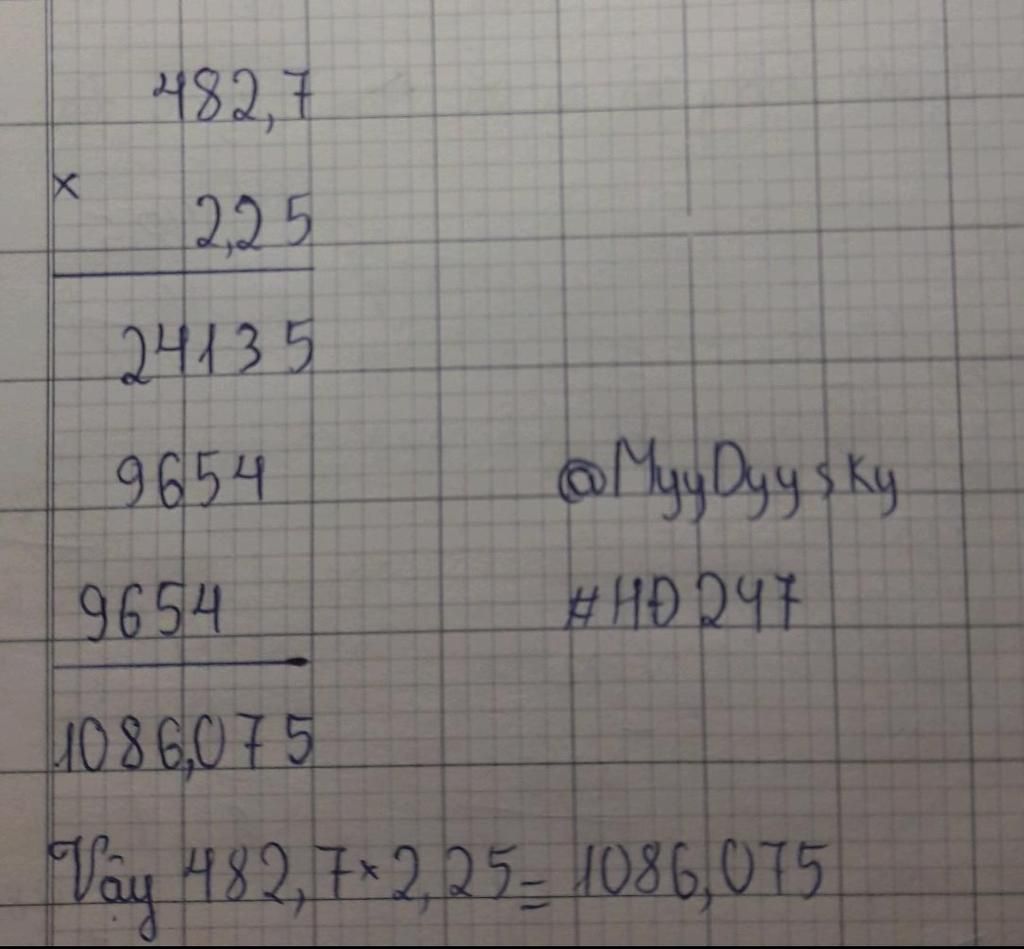 482,7
×
2,25
24135
9654
@MyyDyysky
9654
#HĐ247
1086,075
Vậy 482,7×2,25=1086,075